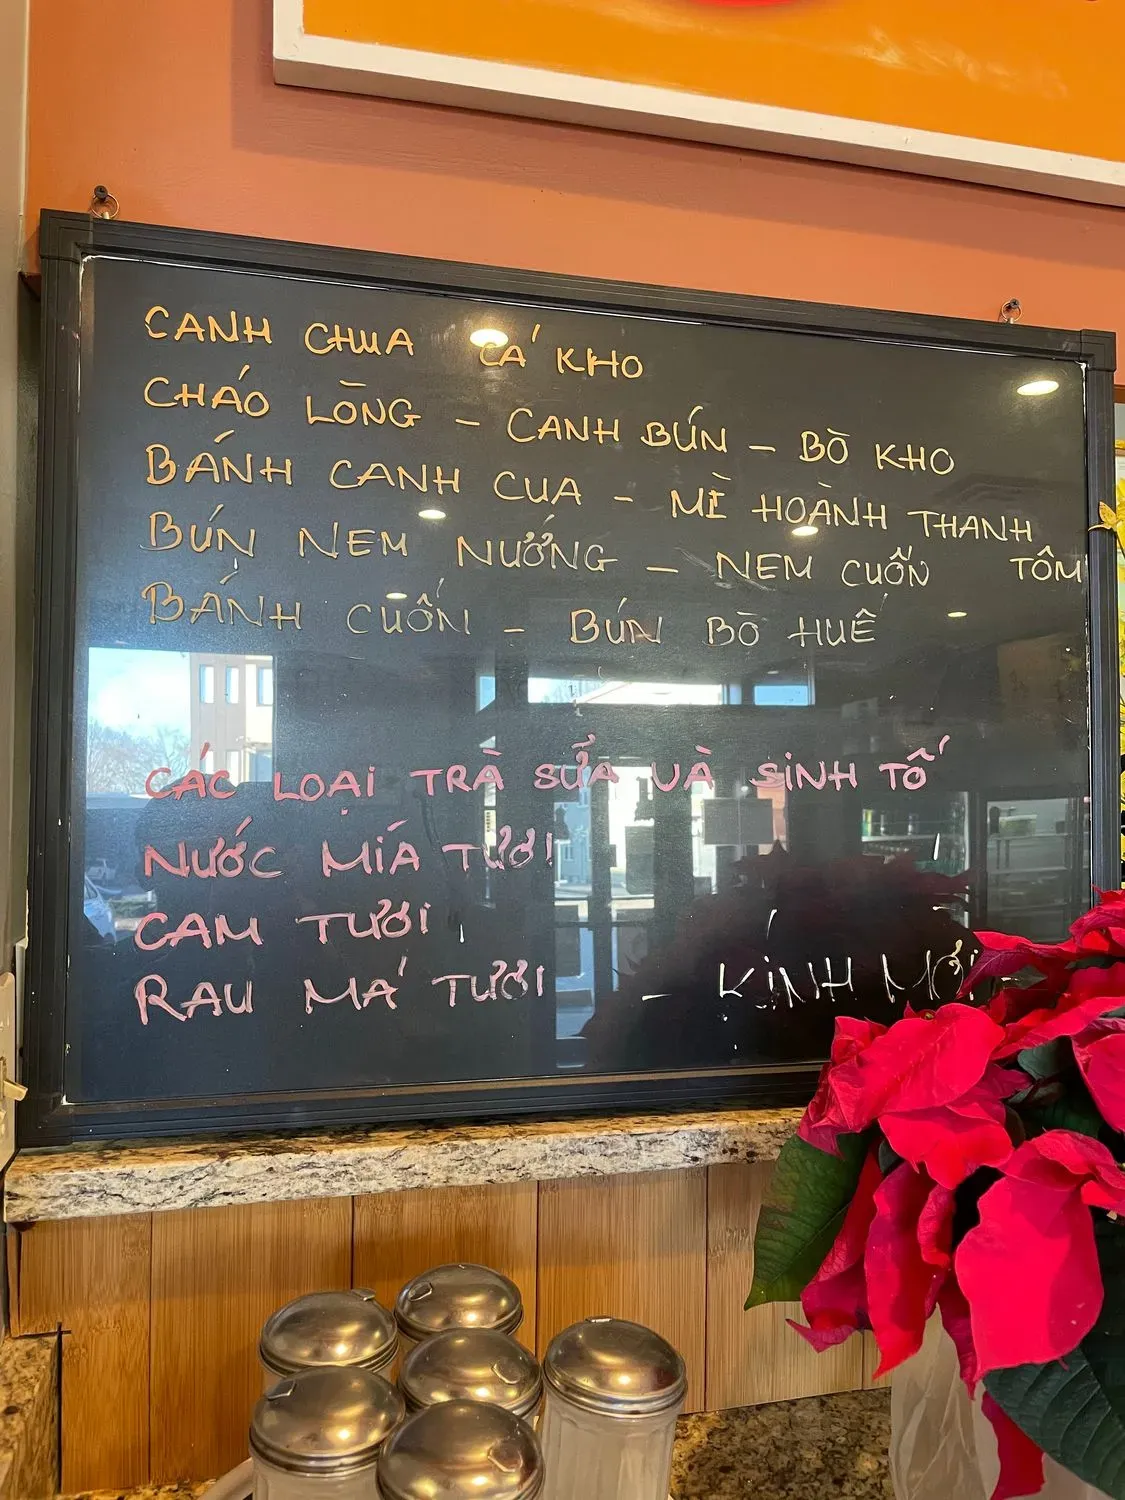 CANH CHUA CÁ KHO
CHÁO LÒNG - CANH BÚN - BÒ KHO
BÁNH CANH CUA - MÌ HOÀNH THANH
BÚN NEM NƯỚNG - NEM CUỐN TÔM
BÁNH CUỐN - BÚN BÒ HUẾ
CÁC LOẠI TRÀ SỮA VÀ SINH TỐ
NƯỚC MÍA TƯƠI
CAM TƯƠI
RAU MÁ TƯƠI - KÍNH MỜI -